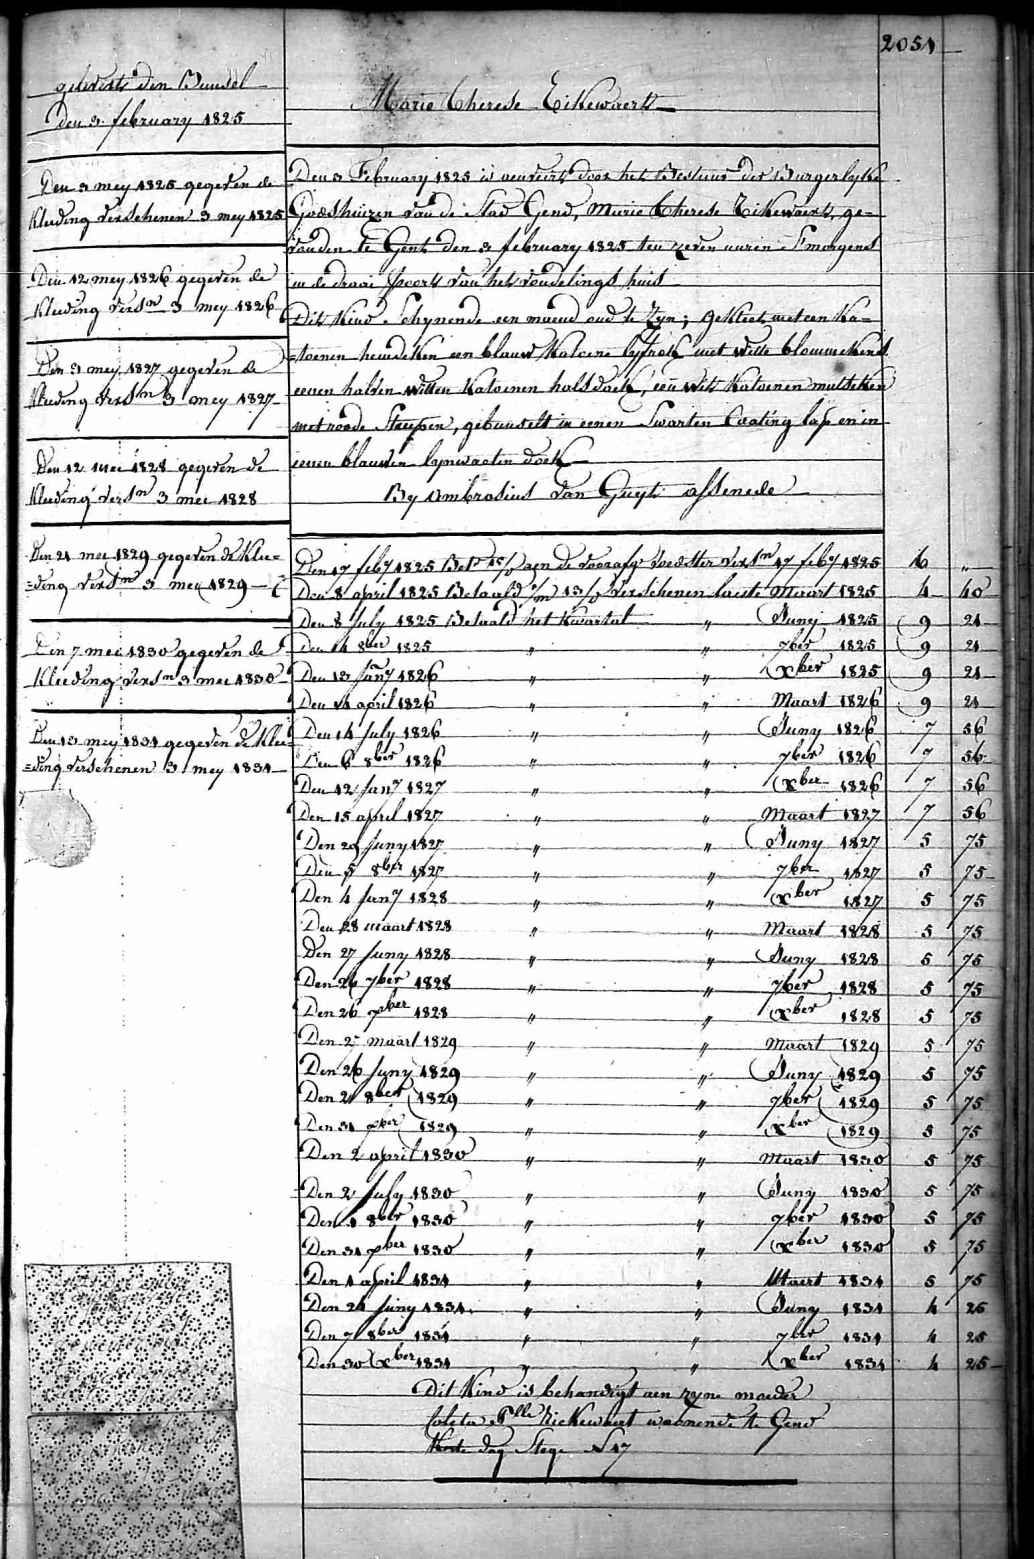 2051
geleverts den Bunsel
den 3 february 1825
Den 3 mey 1825 gegeven de
Kleeding verschenen 3 mey 1825
Den 12 mey 1826 gegeven de
Kleeding versn 3 mey 1826
Den 31 mey 1827 gegeven de
Kleeding versn 3 mey 1827
Den 12 mei 1828 gegeven de
Kleeding versn 3 mei 1828
Den 21 mei 1829 gegeven de Klee=
=ding versn 3 mei 1829
Den 7 mei 1830 gegeven de
Kleeding versn 3 mei 1830
Den 13 mey 1831 gegeven de Klee=
=ding verschenen 3 mey 1831
Marie Therese Eikewaert
Den 3 February 1825 is door het Bestuur der Burgerlyke
Godshuizen van de Stad Gend, Marie Therese Eikewaert, ge=
vonden te Gent den 3 february 1825 ten zeven uuren Smorgens
in de draai poort van het vondelings huis
Dit Kind Schynende een maend oud te Zyn; gekleet met een Ka=
=toenen hemdeken een blauw Katoene lyfrok met witte blommekens
eenen halven witten Katoenen halsdoek, een wit Katoenen mutseken
met roode Streepen, gebunselt in eenen Swarten lap en in
eenen blauwen lynwaeten doek
By Ambrosius Van Guyt assenede
Den 17 feby 1825 aen de voorafg voedster versn 17 feby 1825 6 "
Den 8 april 1825 Betaald verschenen laeste Maart 1825 4 40
Den 8 July 1825 Betaald het Kwartal " Juny 1825 9 21
Den 14 8ber 1825 " " 7ber 1825 9 21
Den 13 Jany 1826 " " Xber 1825 9 21
Den 14 april 1826 " " Maart 1826 9 21
Den 14 July 1826 " " Juny 1826 7 56
Den 6 8ber 1826 " " 7ber 1826 7 56
Den 12 Jany 1827 " " Xber 1826 7 56
Den 15 april 1827 " " Maart 1827 7 56
Den 29 Juny 1827 " " Juny 1827 5 75
Den 5 8ber 1827 " " 7ber 1827 5 75
Den 4 Jany 1828 " " Xber 1827 5 75
Den 28 maart 1828 " " Maart 1828 5 75
Den 27 Juny 1828 " " Juny 1828 5 75
Den 26 7ber 1828 " " 7ber 1828 5 75
Den 26 xber 1828 " " Xber 1828 5 75
Den 27 maart 1829 " " Maart 1829 5 75
Den 26 Juny 1829 " " Juny 1829 5 75
Den 2 8ber 1829 " " 7ber 1829 5 75
Den 31 xber 1829 " " Xber 1829 5 75
Den 2 april 1830 " " Maart 1830 5 75
Den 2 July 1830 " " Juny 1830 5 75
Den 1 8ber 1830 " " 7ber 1830 5 75
Den 31 xber 1830 " " Xber 1830 5 75
Den 1 april 1831 " " Maert 1831 5 75
Den 24 Juny 1831 " " Juny 1831 4 25
Den 7 8ber 1831 " " 7ber 1831 4 25
Den 30 Xber 1831 " " Xber 1831 4 25
Dit Kind is behandigt aen zyne moeder
Coleta woonende te Gend
dag Stege N 17